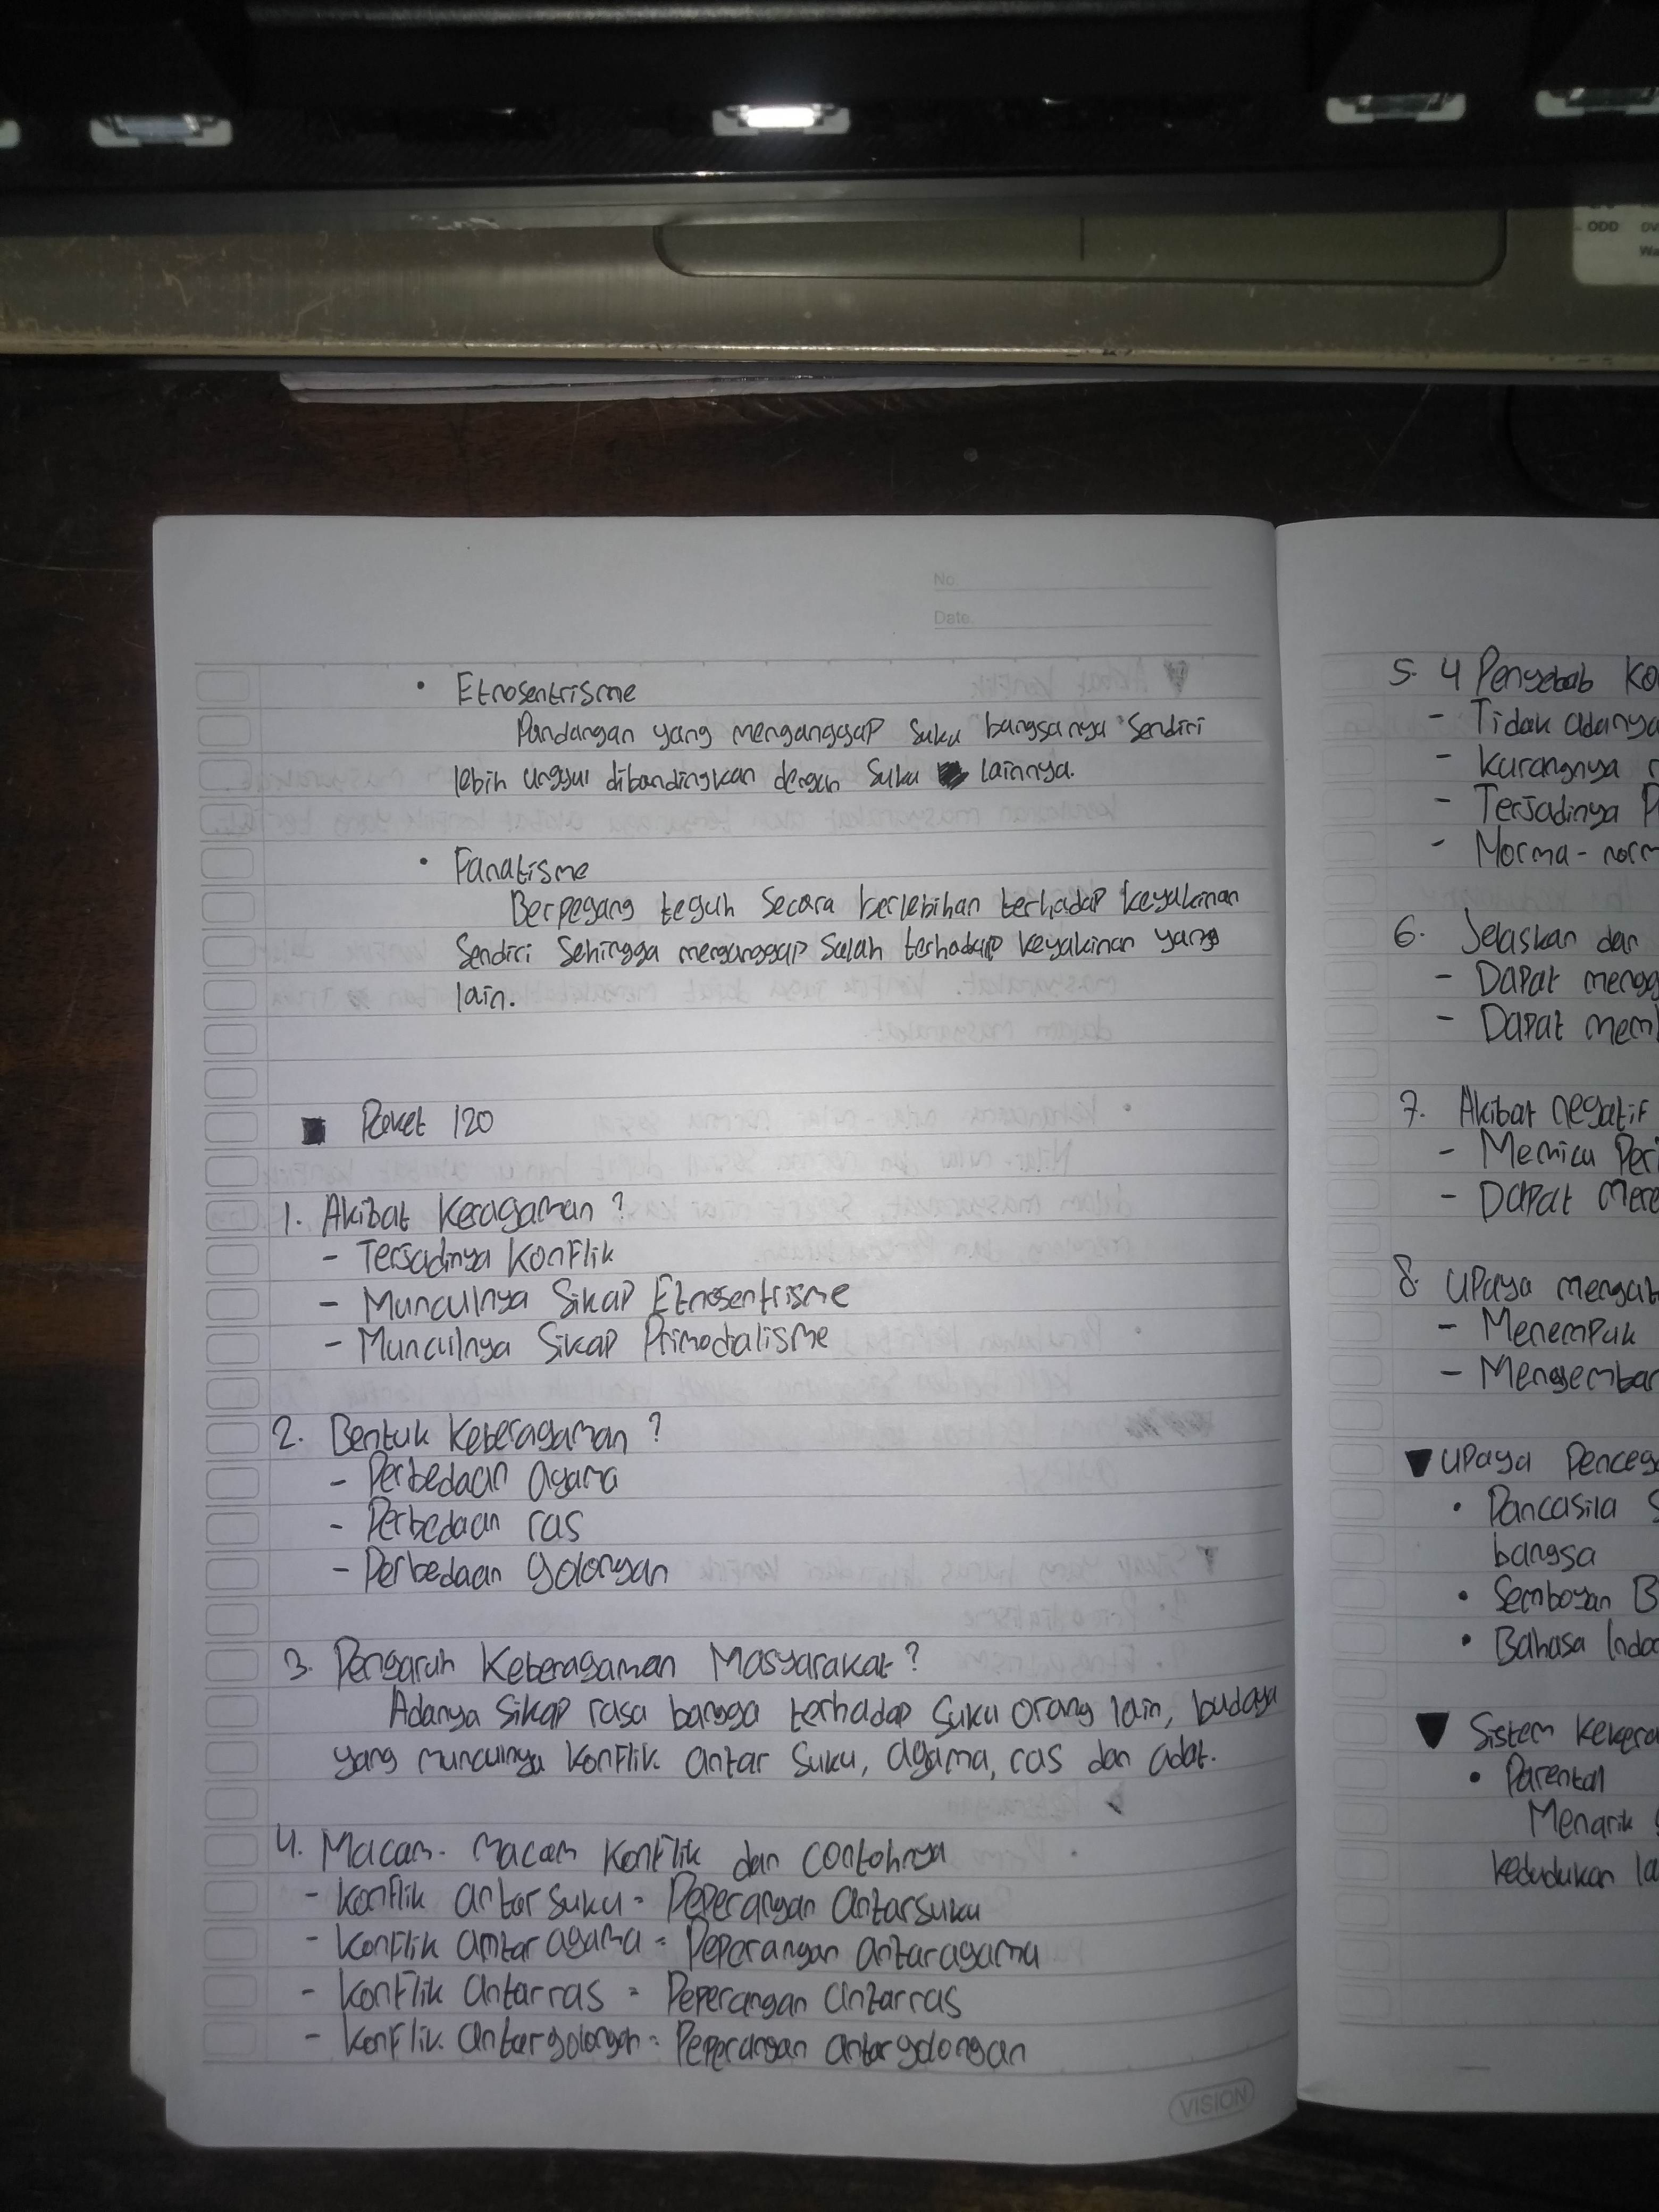 ODD DV
No.
Date.
• Etnosentrisme
Pandangan yang menganggap suku bangsanya sendiri
lebih unggul dibandingkan dengan suku lainnya.
• Fanatisme
Berpegang teguh Secara berlebihan terhadap keyakinan
Sendiri Sehingga menganggap Salah terhadap keyakinan yang
lain.
■ Paket 120
1. Akibat Keragaman ?
- Terjadinya Konflik
- Munculnya Sikap Etnosentrisme
- Munculnya Sikap Primodialisme
2. Bentuk Keberagaman ?
- Perbedaan agama
- Perbedaan ras
- Perbedaan golongan
3. Pengaruh Keberagaman Masyarakat ?
Adanya Sikap rasa bangga terhadap Suku orang lain, budaya
yang munculnya Konflik antar Suku, agama, ras dan adat.
4. Macam- macam Konflik dan contohnya
- Konflik antar suku = Peperangan antarsuku
- Konflik antar agama = Peperangan antaragama
- Konflik antarras = Peperangan antarras
- Konflik antargolongan = Peperangan antargolongan
VISION
5. 4 Penyebab Ko
- Tidak adanya
- Kurangnya
- Terjadinya P
- Morma - norm
6. Jelaskan dan
- Dapat mengg
- Dapat mem
7. Akibat negatif
- Memicu Per
- Dapat Mere
8. Upaya mengat
- Menempuk
- Mengembar
▼ Upaya Penceg
• Pancasila S
bangsa
• Semboyan B
• Bahasa Indo
▼ Sistem Kekera
• Parental
Menarik
kedudukan la